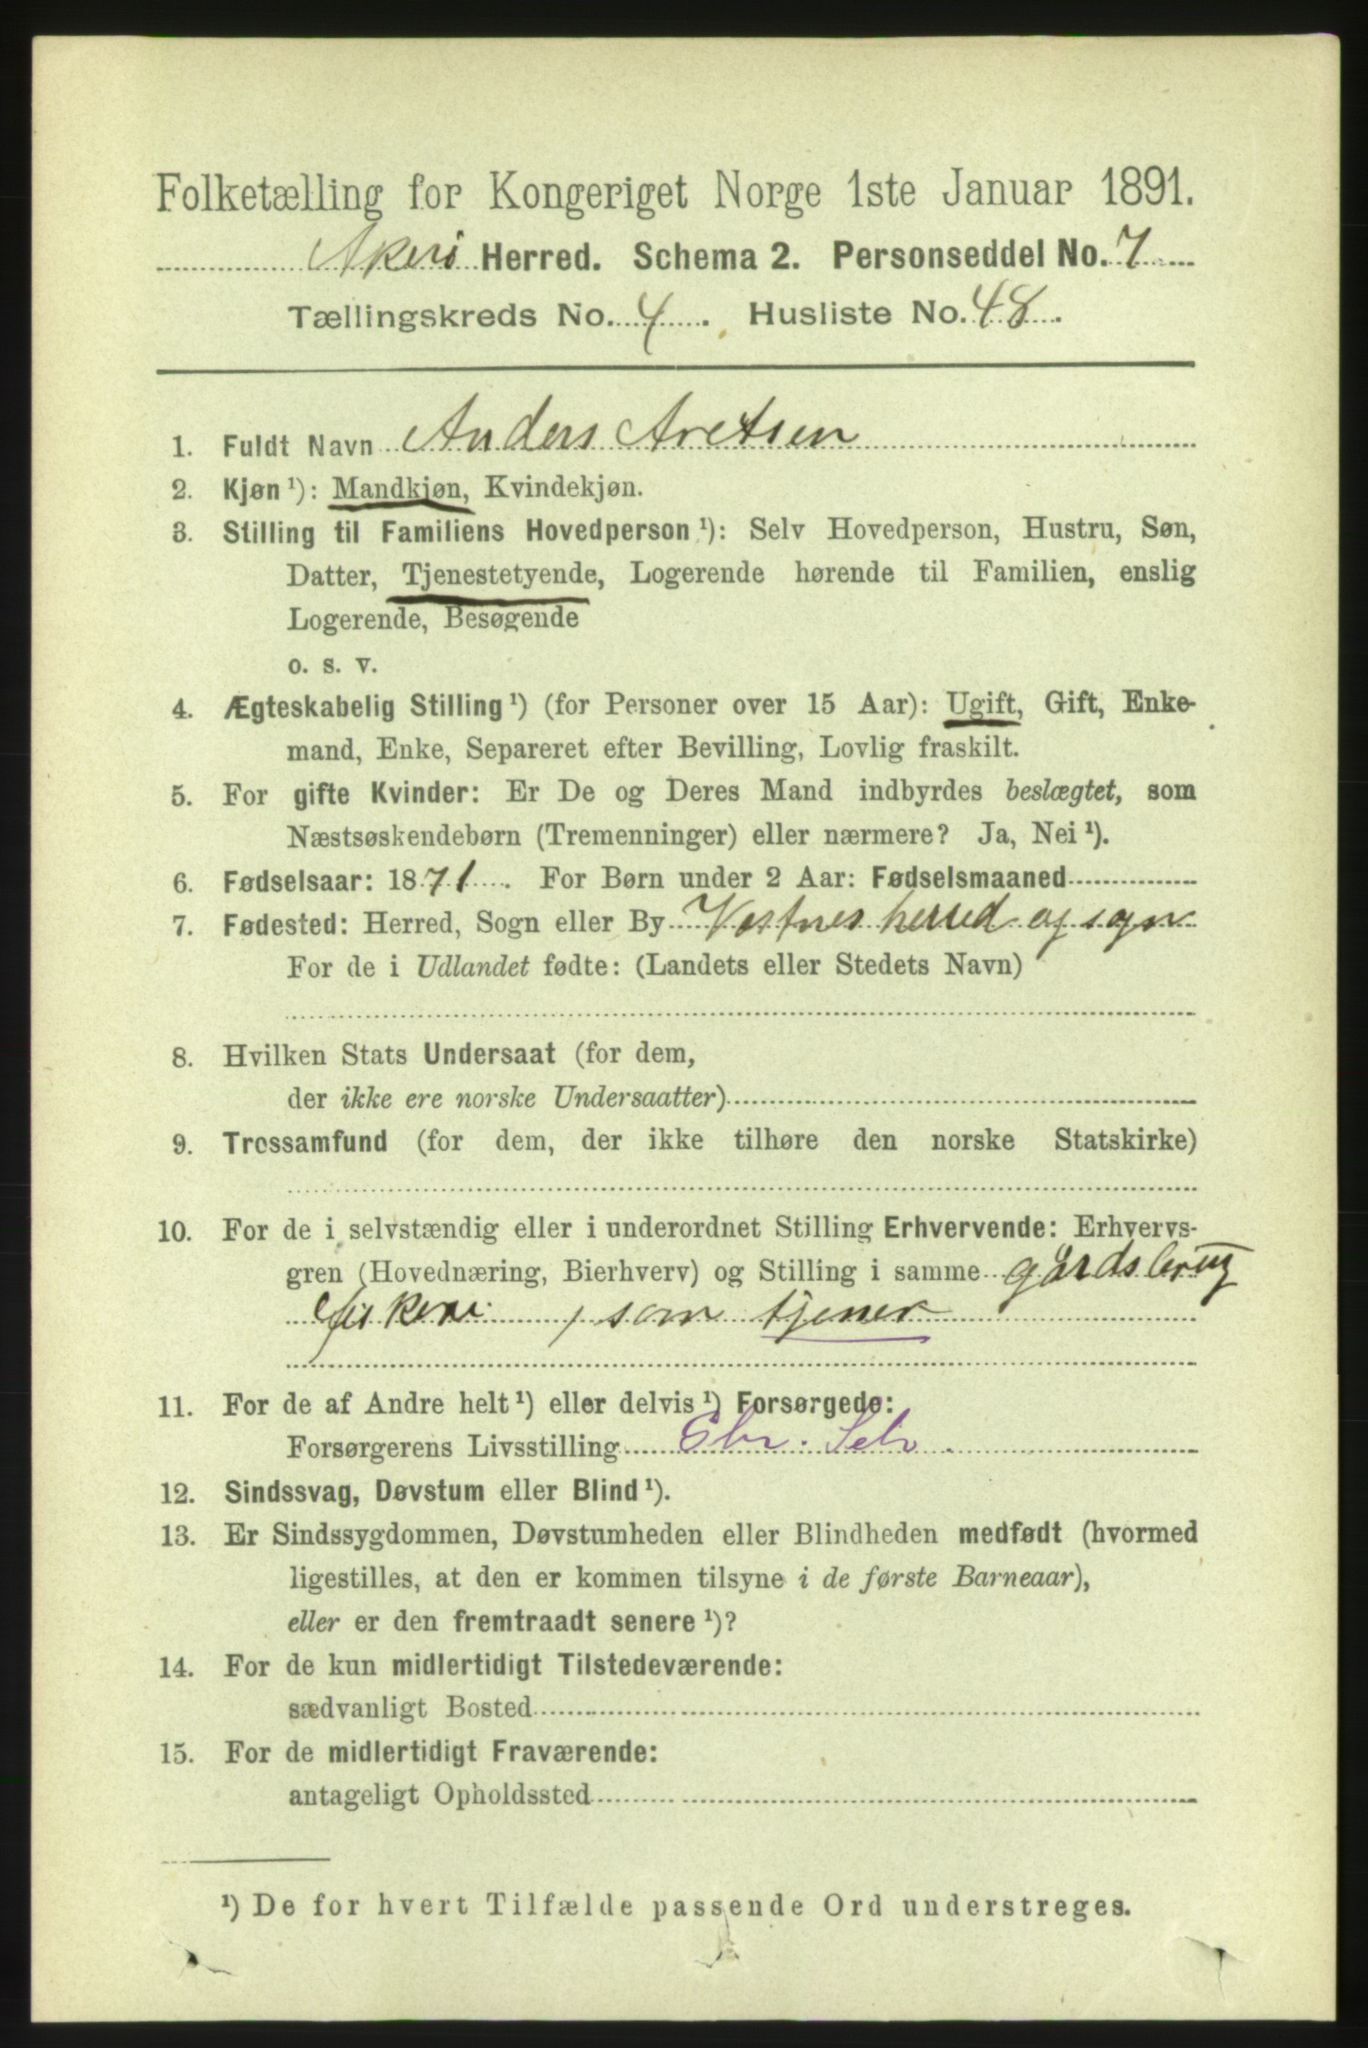 Folketælling for Kongeriget Norge 1ste Januar 1891.
Akerö Herred. Schema 2. Personseddel No. 7
Tællingskreds No. 4. Husliste No. 48.
1. Fuldt Navn Anders Aretsen
2. Kjøn ¹): Mandkjøn, Kvindekjøn.
3. Stilling til Familiens Hovedperson ¹): Selv Hovedperson, Hustru, Søn,
Datter, Tjenestetyende, Logerende hørende til Familien, enslig
Logerende, Besøgende
o. s. v.
4. Ægteskabelig Stilling ¹) (for Personer over 15 Aar): Ugift, Gift, Enke-
mand, Enke, Separeret efter Bevilling, Lovlig fraskilt.
5. For gifte Kvinder: Er De og Deres Mand indbyrdes beslægtet, som
Næstsøskendebørn (Tremenninger) eller nærmere? Ja, Nei ¹).
6. Fødselsaar: 1871. For Børn under 2 Aar: Fødselsmaaned
7. Fødested: Herred, Sogn eller By Vestnes herred og sogn
For de i Udlandet fødte: (Landets eller Stedets Navn)
8. Hvilken Stats Undersaat (for dem,
der ikke ere norske Undersaatter)
9. Trossamfund (for dem, der ikke tilhøre den norske Statskirke)
10. For de i selvstændig eller i underordnet Stilling Erhvervende: Erhvervs-
gren (Hovednæring, Bierhverv) og Stilling i samme gårdsbrug
fiskeri , som tjener
11. For de af Andre helt ¹) eller delvis ¹) Forsørgede:
Forsørgerens Livsstilling Ebr. Selv.
12. Sindssvag, Døvstum eller Blind ¹).
13. Er Sindssygdommen, Døvstumheden eller Blindheden medfødt (hvormed
ligestilles, at den er kommen tilsyne i de første Barneaar),
eller er den fremtraadt senere ¹)?
14. For de kun midlertidigt Tilstedeværende:
sædvanligt Bosted
15. For de midlertidigt Fraværende:
antageligt Opholdssted
¹) De for hvert Tilfælde passende Ord understreges.